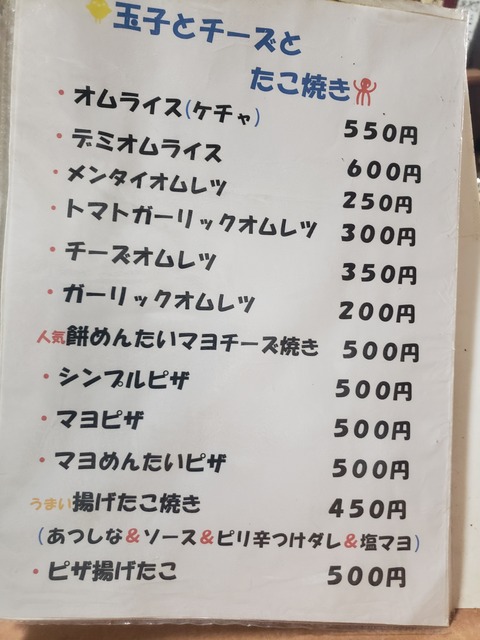 玉子とチーズと
たこ焼き
・オムライス(ケチャ) 550円
・デミオムライス 600円
・メンタイオムレツ 250円
・トマトガーリックオムレツ 300円
・チーズオムレツ 350円
・ガーリックオムレツ 200円
人気餅めんたいマヨチーズ焼き 500円
・シンプルピザ 500円
・マヨピザ 500円
・マヨめんたいピザ 500円
うまい揚げたこ焼き 450円
(あつしな&ソース&ピリ辛つけダレ&塩マヨ)
・ピザ揚げたこ 500円